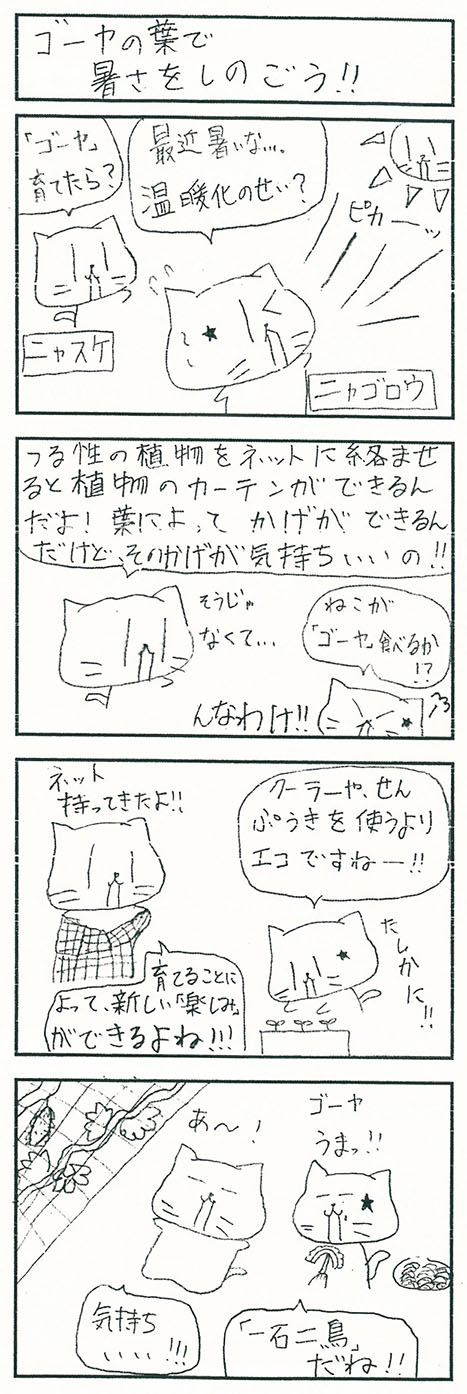 ゴーヤの葉で
暑さをしのごう!!
ピカーッ
最近暑いな…。
温暖化のせい?
「ゴーヤ」
育てたら?
ニャスケ
ニャゴロウ
つる性の植物をネットに絡ませ
ると植物のカーテンができるん
だよ!葉によってかげができるん
だけど、そのかげが気持ちいいの!!
ねこが
「ゴーヤ」食べるか
!?
そうじゃ
なくて…
んなわけ!!
クーラーや、せん
ぷうきを使うより
エコですねー!!
たしかに!!
ネット
持ってきたよ!!
育てることに
よって、新しい「楽しみ」
ができるよね!!!
ゴーヤ
うまっ!!
「一石二鳥」
だね!!
あ〜!
気持ち
いい!!!